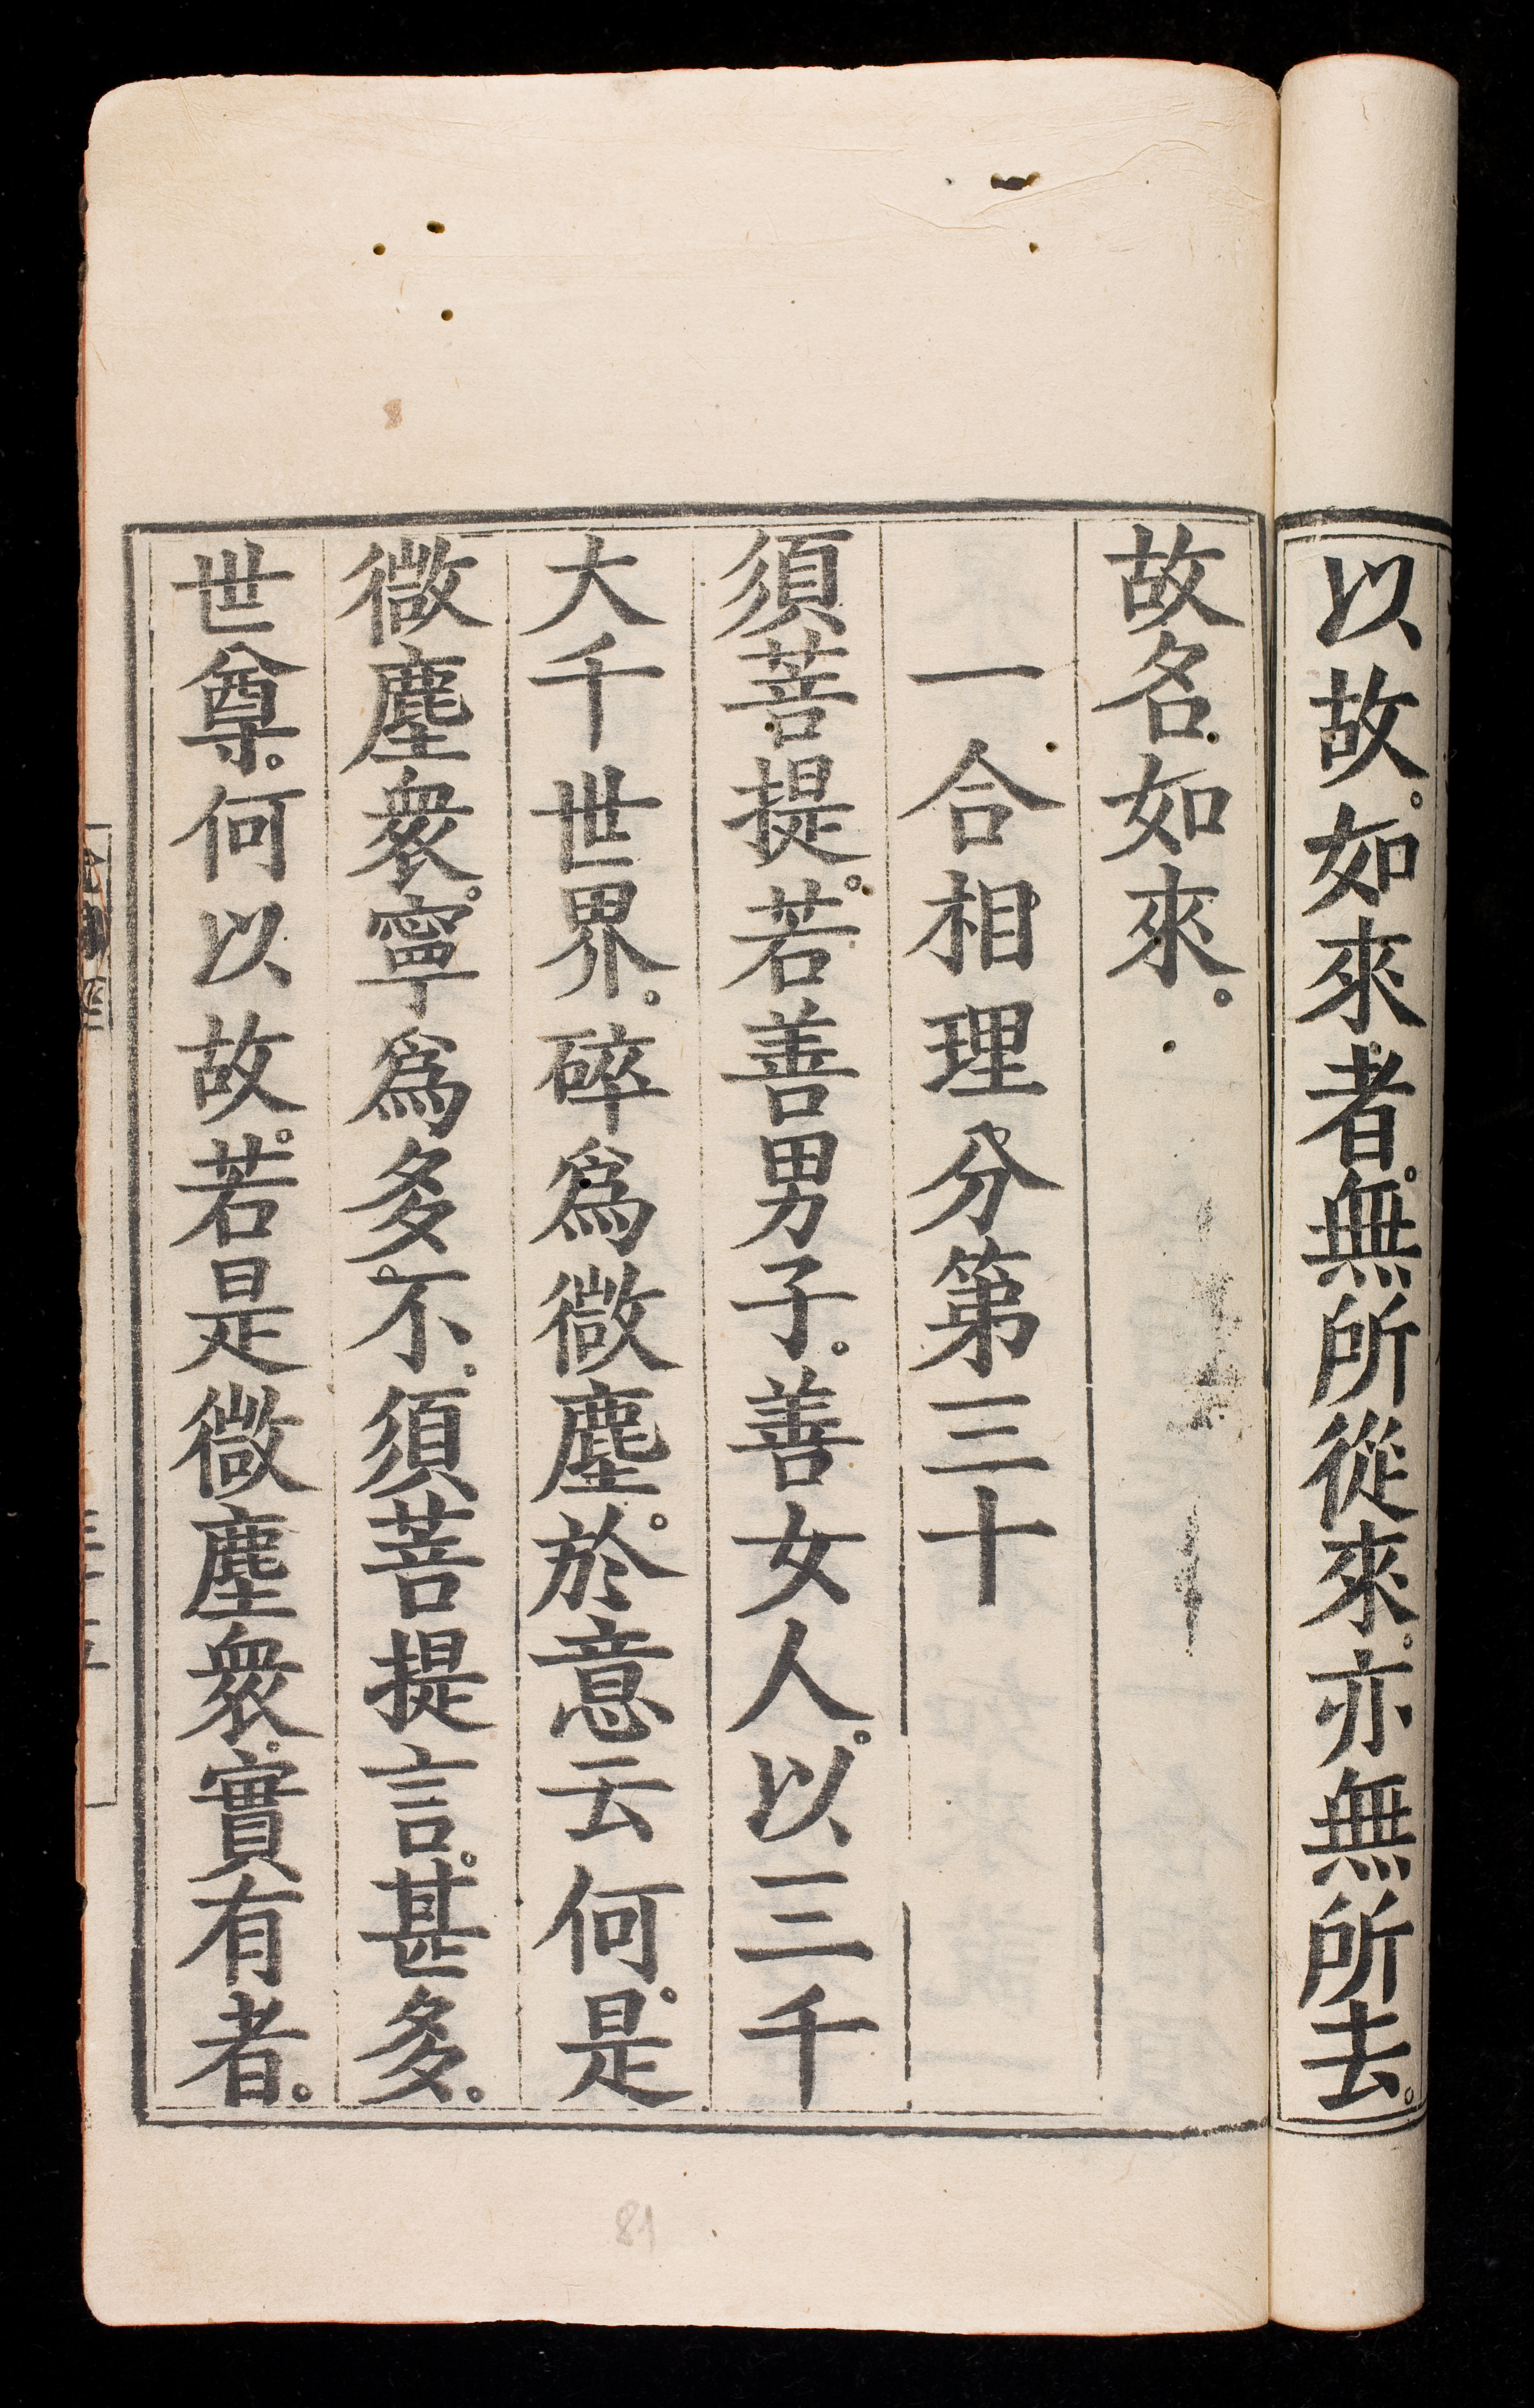 以故。如來者。無所從來。亦無所去。
故名如來。
一合相理分第三十
須菩提。若善男子。善女人。以三千
大千世界。碎爲微塵。於意云何。是
微塵衆。寧爲多不。須菩提言。甚多。
世尊。何以故。若是微塵衆。實有者。
81